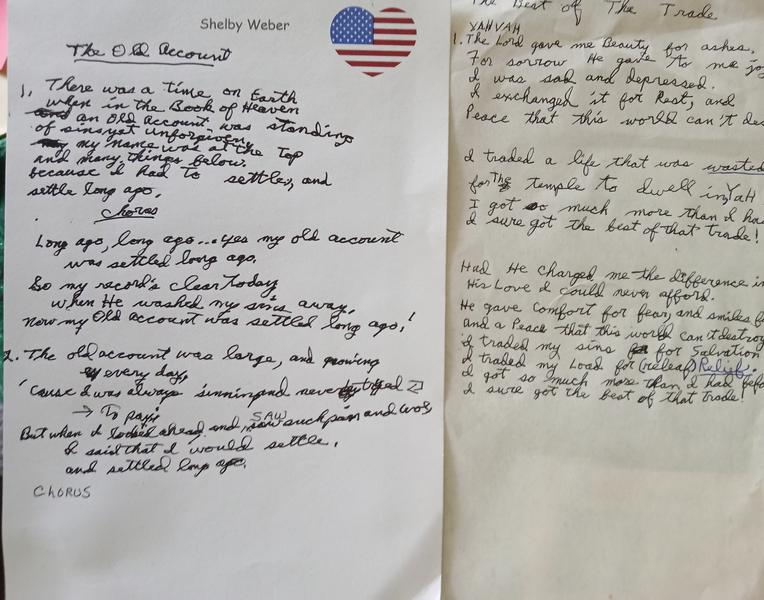 Shelby Weber
The Old Account
1. There was a time on Earth
when in the Book of Heaven
an Old Account was standing
of sins yet unforgiven
my name was at the Top
and many things below.
because I had To settle, and
settle long ago.
Chorus
Long ago, long ago... yes my old account
was settled long ago.
So my record's clear today
when He washed my sins away,
now my Old account was settled long ago!
2. The old account was large, and growing
every day,
'Cause I was always sinning and never
→ To pay,
But when I looked ahead and, saw such pain and
I said that I would settle,
and settled long ago.
CHORUS
The Best of The Trade
YAHVAH
1. The Lord gave me Beauty for ashes.
For sorrow He gave to me
I was sad and depressed.
I exchanged it for Rest, and
Peace that this world can't
I traded a life that was wasted
for The temple to dwell in Yah
I got so much more than I
I sure got the best of that trade!
Had He charged me the difference in
His Love I could never afford.
He gave comfort for fear, and smiles
and a Peace that this world can't destroy
I traded my sins for Salvation
I traded my Load for (releaf) Relief.
I got so much more than I had
I sure got the best of that trade!